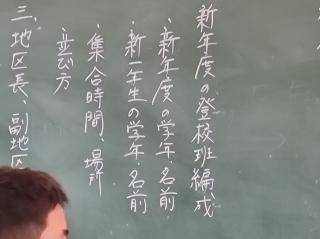 新年度の登校班編成
・新年度の学年、名前
・新一年生の学年、名前
・集合時間、場所
・並び方
三、地区長、副地区